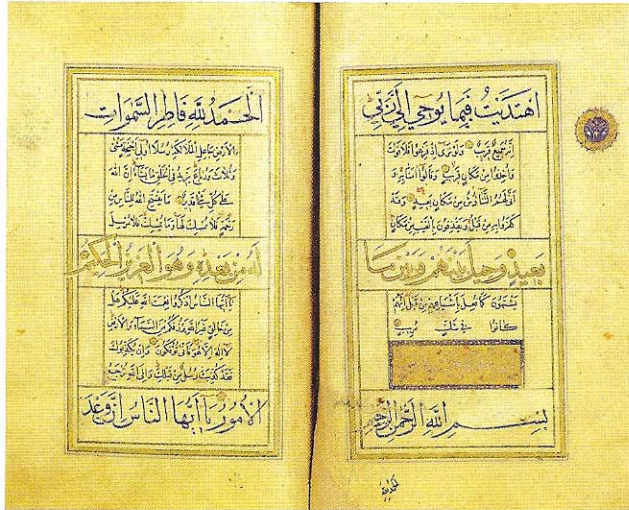 اهْتَدَيْتُ فَبِمَا يُوحِي اِلَيَّ رَبِّي
اِنَّهُ سَمِيعٌ قَرِيبٌ وَلَوْ تَرَى اِذْ فَزِعُوا فَلَا فَوْتَ
وَاُخِذُوا مِنْ مَكَانٍ قَرِيبٍ وَقَالُوا آمَنَّا بِهِ وَ
اَنَّى لَهُمُ التَّنَاوُشُ مِنْ مَكَانٍ بَعِيدٍ وَقَدْ
كَفَرُوا بِهِ مِنْ قَبْلُ وَيَقْذِفُونَ بِالْغَيْبِ مِنْ مَكَانٍ
بَعِيدٍ وَحِيلَ بَيْنَهُمْ وَبَيْنَ مَا
يَشْتَهُونَ كَمَا فُعِلَ بِاَشْيَاعِهِمْ مِنْ قَبْلُ اِنَّهُمْ
كَانُوا فِي شَكٍّ مُرِيبٍ
بِسْمِ اللّٰهِ الرَّحْمٰنِ الرَّحِيمِ
اَلْحَمْدُ لِلّٰهِ فَاطِرِ السَّمٰوَاتِ
وَالْاَرْضِ جَاعِلِ الْمَلَائِكَةِ رُسُلًا اُولِي اَجْنِحَةٍ مَثْنَى
وَثُلَاثَ وَرُبَاعَ يَزِيدُ فِي الْخَلْقِ مَا يَشَاءُ اِنَّ اللّٰهَ
عَلَى كُلِّ شَيْءٍ قَدِيرٌ مَا يَفْتَحِ اللّٰهُ لِلنَّاسِ مِنْ
رَحْمَةٍ فَلَا مُمْسِكَ لَهَا وَمَا يُمْسِكْ فَلَا مُرْسِلَ
لَهُ مِنْ بَعْدِهِ وَهُوَ الْعَزِيزُ الْحَكِيمُ
يَا اَيُّهَا النَّاسُ اذْكُرُوا نِعْمَتَ اللّٰهِ عَلَيْكُمْ هَلْ
مِنْ خَالِقٍ غَيْرُ اللّٰهِ يَرْزُقُكُمْ مِنَ السَّمَاءِ وَالْاَرْضِ
لَا اِلٰهَ اِلَّا هُوَ فَاَنَّى تُؤْفَكُونَ وَاِنْ يُكَذِّبُوكَ
فَقَدْ كُذِّبَتْ رُسُلٌ مِنْ قَبْلِكَ وَاِلَى اللّٰهِ تُرْجَعُ
الْاُمُورُ يَا اَيُّهَا النَّاسُ اِنَّ وَعْدَ